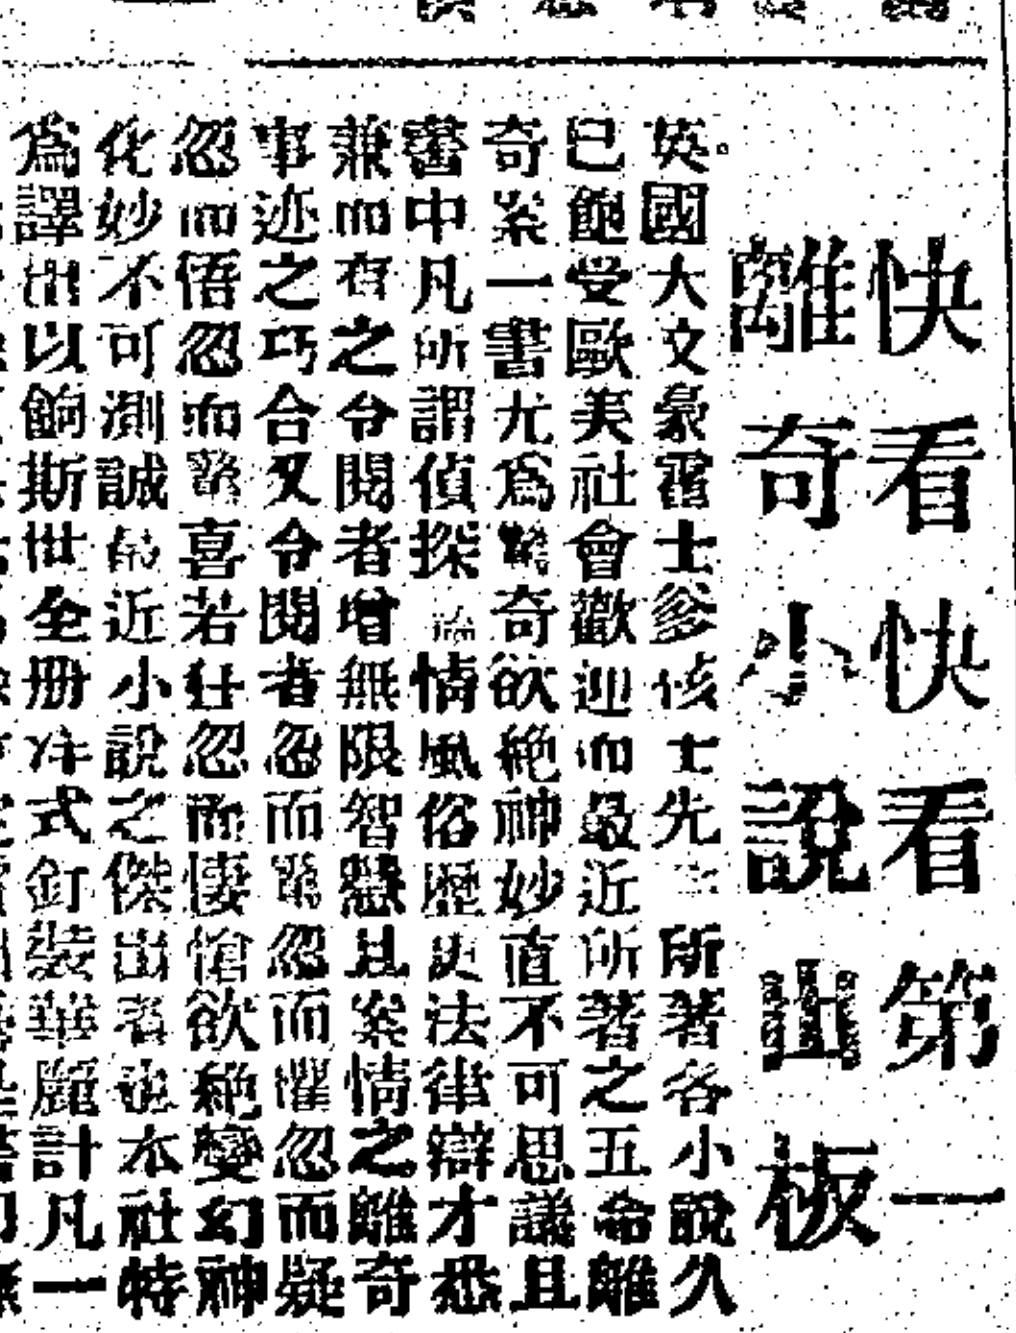 快看快看第一
離奇小說出板
英國大文豪霍士爹核士先生所著各小說久
已飽受歐美社會歡迎而最近所著之五命離
奇案一書尤爲驚奇欲絶神妙直不可思議且
書中凡所謂偵探 情風俗歷史法律辯才悉
兼而有之令閱者增無限智慧且案情之離奇
事迹之巧合又令閱者忽而驚忽而懼忽而疑
忽而悟忽而驚喜若狂忽而悽愴欲絶變幻神
化妙不可測誠 近小說之傑出者也本社特
爲譯出以餉斯世全册洋式釘裝華麗計凡一